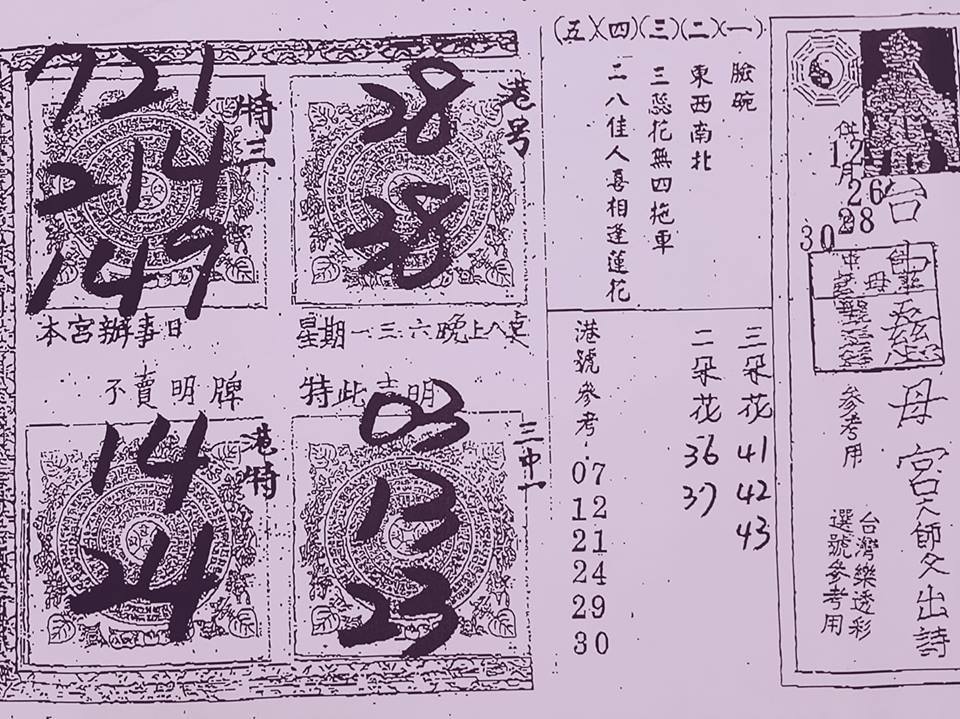 台
母宮天師父出詩
供
12月
26
28
30
參考用
台灣樂透彩
選號參考用
(一)
(二)
(三)
(四)
(五)
臉碗
東西南北
三蕊花無四拖車
二八佳人喜相逢蓮花
三朵花 41 42 43
二朵花 36 37
港號參考
07
12
21
24
29
30
港号
28
38
特三
721
214
149
星期一三六晚上八点
本宮辦事日
特此声明
不賣明牌
三中一
03
13
23
港特
14
24